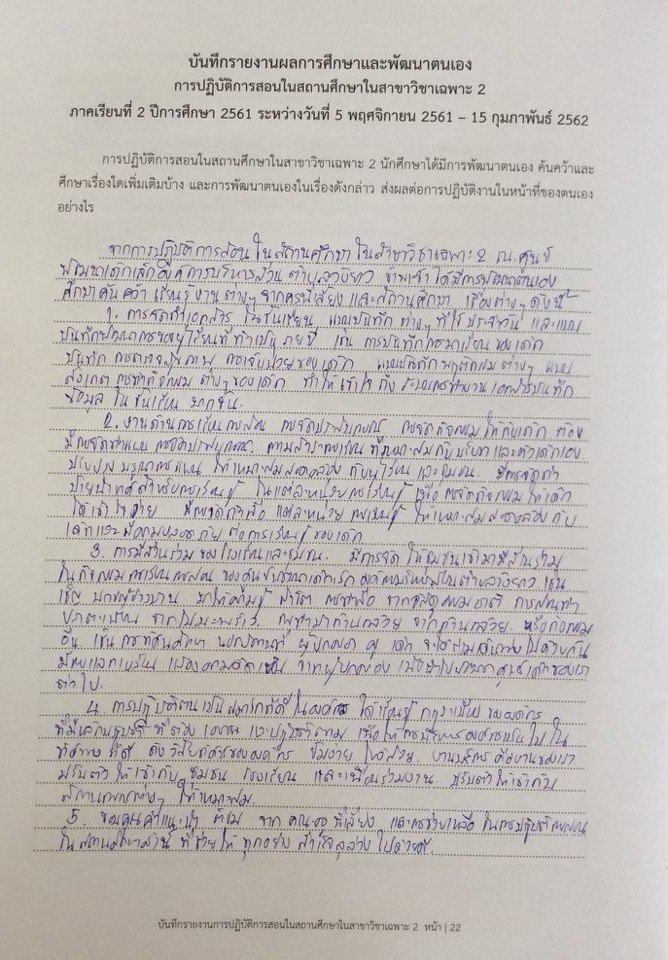 บันทึกรายงานผลการศึกษาและพัฒนาตนเอง
การปฏิบัติการสอนในสถานศึกษาในสาขาวิชาเฉพาะ 2
ภาคเรียนที่ 2 ปีการศึกษา 2561 ระหว่างวันที่ 5 พฤศจิกายน 2561 – 15 กุมภาพันธ์ 2562
การปฏิบัติการสอนในสถานศึกษาในสาขาวิชาเฉพาะ 2 นักศึกษาได้มีการพัฒนาตนเอง ค้นคว้าและ
ศึกษาเรื่องใดเพิ่มเติมบ้าง และการพัฒนาตนเองในเรื่องดังกล่าว ส่งผลต่อการปฏิบัติงานในหน้าที่ของตนเอง
อย่างไร
จากการปฏิบัติการสอนในสถานศึกษาในสาขาวิชาเฉพาะ 2 ณ ศูนย์
พัฒนาเด็กเล็กองค์การบริหารส่วนตำบล ข้าพเจ้าได้มีการพัฒนาตนเอง
ศึกษาค้นคว้า เรียนรู้งานต่างๆจากครูพี่เลี้ยง และสถานศึกษา เรื่องต่างๆดังนี้
1. การจัดทำเอกสาร ในชั้นเรียน แบบบันทึก ต่างๆที่ใช้ประจำวัน และแบบ
บันทึกพัฒนาการของผู้เรียนที่ทำเป็นรายปี เช่น การบันทึกการมาเรียนของเด็ก
บันทึก การตรวจสุขภาพ การเจ็บป่วยของเด็ก แบบบันทึกพฤติกรรมต่างๆ แบบ
สังเกตการทำกิจกรรม ต่างๆของเด็ก ทำให้เข้าใจถึงระบบการทำงานเอกสารบันทึก
ข้อมูล ในชั้นเรียน มากขึ้น
2. งานด้านการเรียนการสอน การจัดประสบการณ์ การจัดกิจกรรมให้กับเด็ก ต้อง
มีการจัดทำแผนการจัดประสบการณ์ ตามสาระการเรียนรู้ที่เหมาะสมกับบริบทและตัวเด็กเอง
ปรับปรุง บูรณาการแผน ให้เหมาะสมสอดคล้องกับผู้เรียน และชุมชน มีการจัดทำ
ป้ายนิเทศสำหรับการเรียนรู้ ในแต่ละหน่วยการเรียนรู้ เพื่อการจัดกิจกรรมให้เด็ก
ได้เข้าใจง่าย มีการจัดทำสื่อ แต่ละหน่วยการเรียนรู้ ให้เหมาะสมสอดคล้องกับ
เด็กและมีความปลอดภัยต่อการเรียนรู้ของเด็ก
3. การมีส่วนร่วมของโรงเรียนและชุมชน มีการจัดให้ชุมชนเข้ามามีส่วนร่วม
ในกิจกรรมการเรียนการสอน ของศูนย์พัฒนาเด็กเล็กองค์การบริหารส่วนตำบล เช่น
เชิญ มาให้ความรู้ สาธิต การทำสื่อ จากวัสดุธรรมชาติ การสานปลา
ตะเพียน จากใบมะพร้าว การทำม้าก้านกล้วย จากก้านกล้วย หรือกิจกรรม
อื่น เช่น การทัศนศึกษา นอกสถานที่ ผู้ปกครอง ครู เด็ก จะได้ร่วมเดินทางไปด้วยกัน
มีการแลกเปลี่ยน แสดงความคิดเห็น จากผู้ปกครอง เพื่อนำไปพัฒนาศูนย์เด็กของเรา
ต่อไป
4. การปฏิบัติตนเป็นสมาชิกที่ดีในองค์กร ได้เรียนรู้ กฎระเบียบ ขององค์กร
ที่มีหลักปฏิบัติ ที่ต้องเคารพ และปฏิบัติตาม เพื่อให้การบริหารองค์กรเป็นไปใน
ทิศทางที่ดี ดังวิสัยทัศน์ขององค์กร ยิ้มง่าย ไหว้สวย งานบริการ คืองานของเรา
ปรับตัวให้เข้ากับ ชุมชน โรงเรียน และเพื่อนร่วมงาน ปรับตัวให้เข้ากับ
สถานการณ์ต่างๆ ให้เหมาะสม
5. ขอบคุณคำแนะนำ ติชม จาก คุณครูพี่เลี้ยง และการช่วยเหลือ ในการปฏิบัติการสอน
ในสถานศึกษา ที่ช่วยให้ ทุกอย่าง สำเร็จลุล่วง ไปด้วยดี
บันทึกรายงานการปฏิบัติการสอนในสถานศึกษาในสาขาวิชาเฉพาะ 2 หน้า | 22